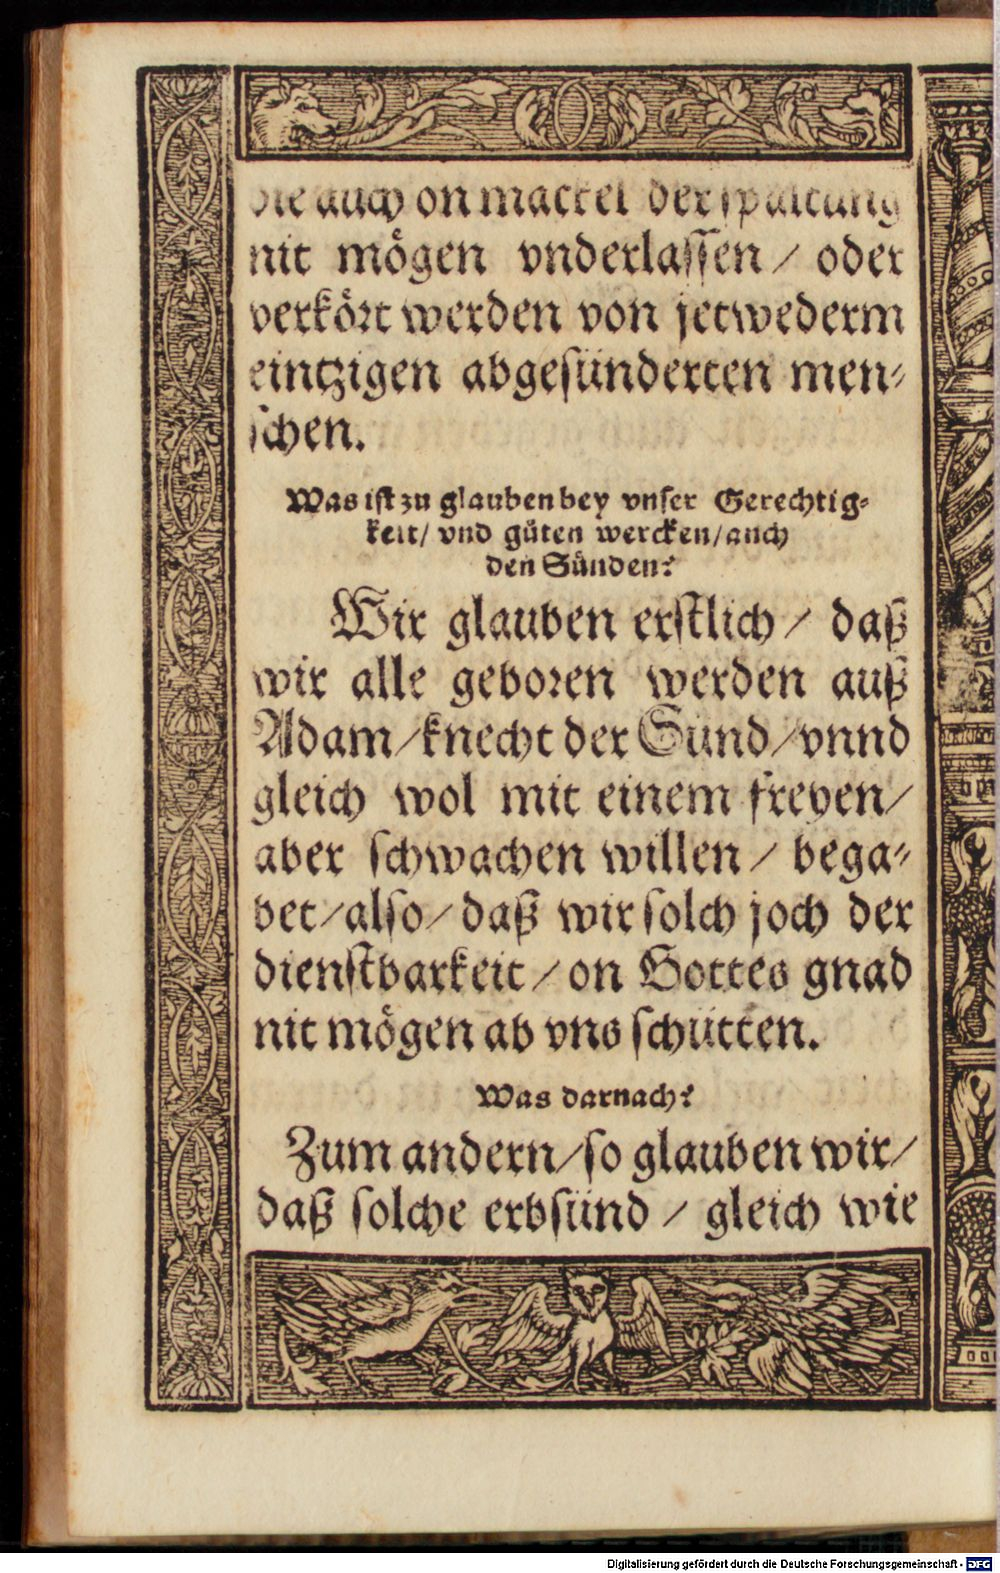 die auch on mackel der spaltung
nit mögen vnderlassen / oder
verkört werden von jetwederm
eintzigen abgesünderten men⸗
schen.
Was ist zu glauben bey vnser Gerechtig⸗
keit / vnd güten wercken / auch
den Sünden?
Wir glauben erstlich / daß
wir alle geboren werden auß
Adam / knecht der Sünd / vnnd
gleich wol mit einem freyen /
aber schwachen willen / bega⸗
bet / also / daß wir solch joch der
dienstbarkeit / on Gottes gnad
nit mögen ab vns schütten.
Was darnach?
Zum andern / so glauben wir /
daß solche erbsünd / gleich wie
Digitalisierung gefördert durch die Deutsche Forschungsgemeinschaft - DFG